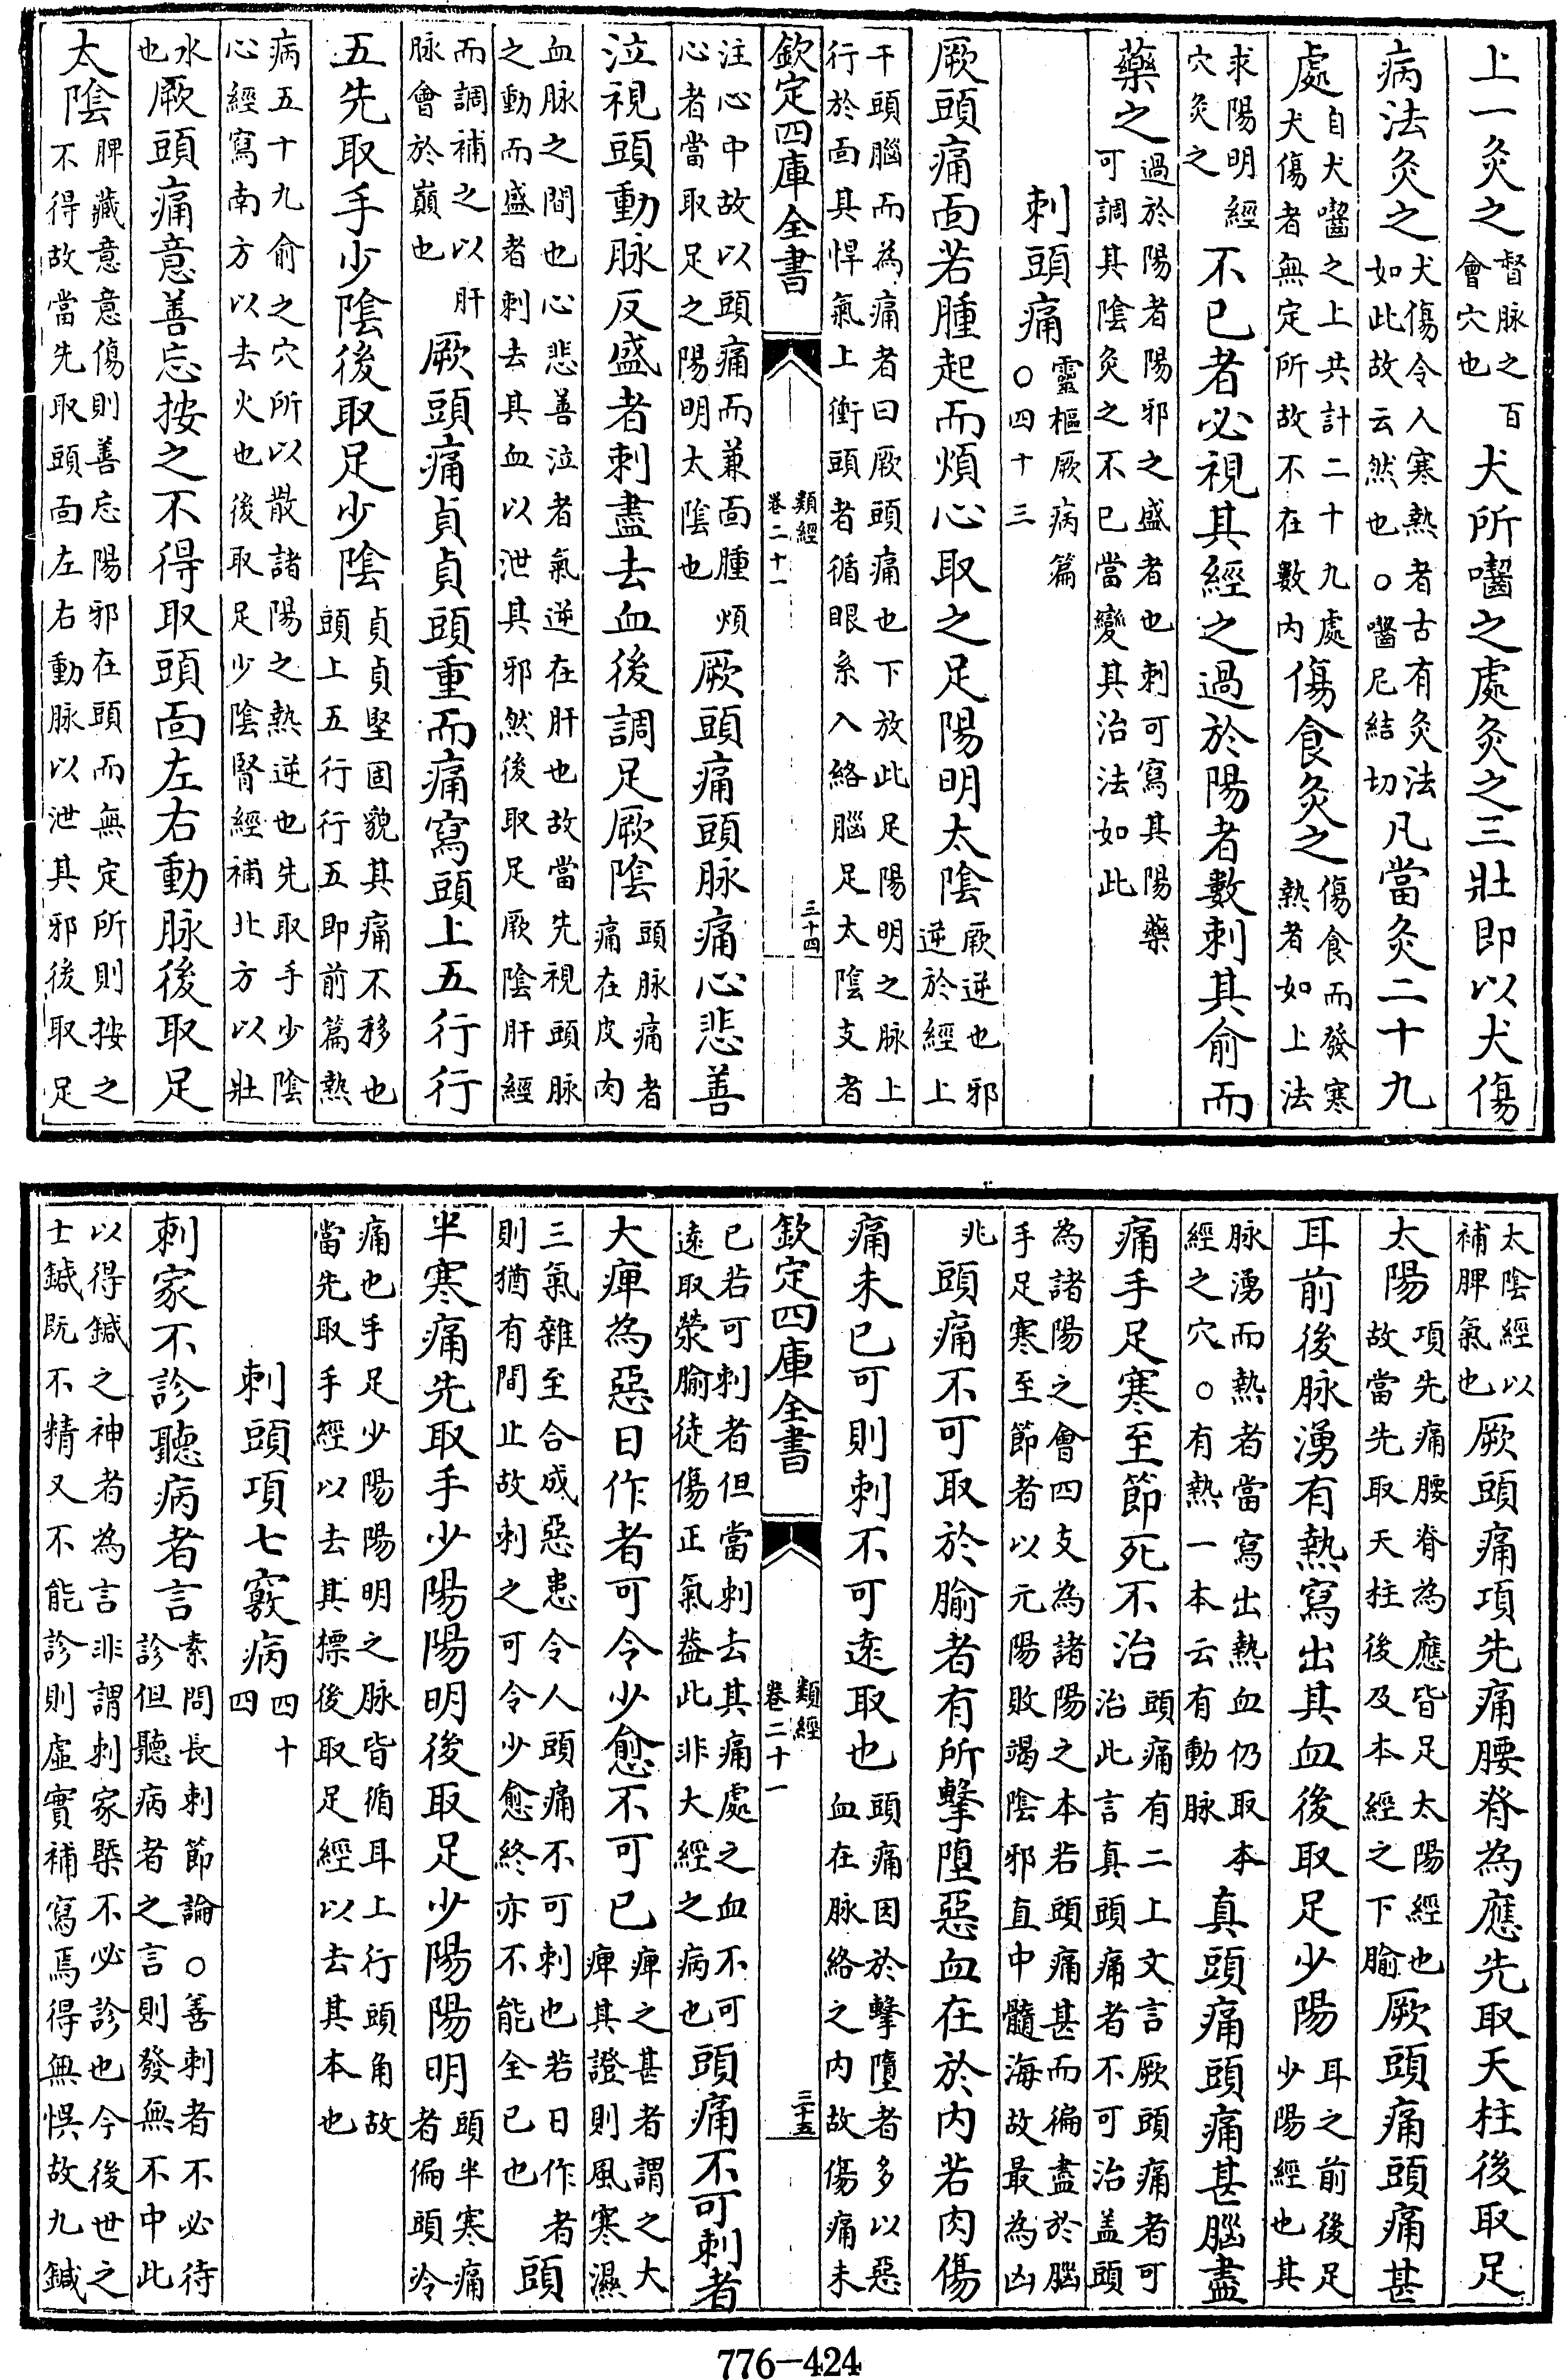 上一灸之督脉之百會穴也犬所嚙之處灸之三壯即以犬傷
病法灸之犬傷令人寒熱者古有灸法如此故云然也○嚙尼結切凡當灸二十九
處自犬嚙之上共計二十九處犬傷者無定所故不在數內傷食灸之傷食而發寒熱者如上法
求陽明經穴灸之不已者必視其經之過於陽者數刺其俞而
藥之過於陽者陽邪之盛者也刺可寫其陽藥可調其陰灸之不已當變其治法如此
刺頭痛靈樞厥病篇○四十三
厥頭痛面若腫起而煩心取之足陽明太陰厥逆也邪逆於經上
干頭腦而為痛者曰厥頭痛也下放此足陽明之脉上行於面其悍氣上衝頭者循眼系入絡腦足太陰支者
欽定四庫全書 類經卷二十一 三十四
注心中故以頭痛而兼面腫煩心者當取足之陽明太陰也厥頭痛頭脉痛心悲善
泣視頭動脉反盛者刺盡去血後調足厥陰頭脉痛者痛在皮肉
血脉之間也心悲善泣者氣逆在肝也故當先視頭脉之動而盛者刺去其血以泄其邪然後取足厥陰肝經
而調補之以肝脉會於巔也厥頭痛貞貞頭重而痛寫頭上五行行
五先取手少陰後取足少陰貞貞堅固貌其痛不移也頭上五行行五即前篇熱
病五十九俞之穴所以散諸陽之熱逆也先取手少陰心經寫南方以去火也後取足少陰腎經補北方以壯
水也厥頭痛意善忘按之不得取頭面左右動脉後取足
太陰脾藏意意傷則善忘陽邪在頭而無定所則按之不得故當先取頭面左右動脉以泄其邪後取足
太陰經以補脾氣也厥頭痛項先痛腰脊為應先取天柱後取足
太陽項先痛腰脊為應皆足太陽經也故當先取天柱後及本經之下腧厥頭痛頭痛甚
耳前後脉湧有熱寫出其血後取足少陽耳之前後足少陽經也其
脉湧而熱者當寫出熱血仍取本經之穴○有熱一本云有動脉真頭痛頭痛甚腦盡
痛手足寒至節死不治頭痛有二上文言厥頭痛者可治此言真頭痛者不可治盖頭
為諸陽之會四支為諸陽之本若頭痛甚而徧盡於腦手足寒至節者以元陽敗竭陰邪直中髓海故最為凶
兆頭痛不可取於腧者有所擊墮惡血在於內若肉傷
痛未已可則刺不可遠取也頭痛因於擊墮者多以惡血在脉絡之內故傷痛未
欽定四庫全書 類經卷二十一 三十五
已若可刺者但當刺去其痛處之血不可遠取滎腧徒傷正氣益此非大經之病也頭痛不可刺者
大痺為惡日作者可令少愈不可已痺之甚者謂之大痺其證則風寒濕
三氣雜至合成惡患令人頭痛不可刺也若日作者則猶有間止故刺之可令少愈終亦不能全已也頭
半寒痛先取手少陽陽明後取足少陽陽明頭半寒痛者偏頭冷
痛也手足少陽陽明之脉皆循耳上行頭角故當先取手經以去其標後取足經以去其本也
刺頭項七竅病四十四
刺家不診聽病者言素問長刺節論○善刺者不必待診但聽病者之言則發無不中此
以得鍼之神者為言非謂刺家槩不必診也今後世之士鍼既不精又不能診則虛實補寫焉得無悞故九鍼
776—424